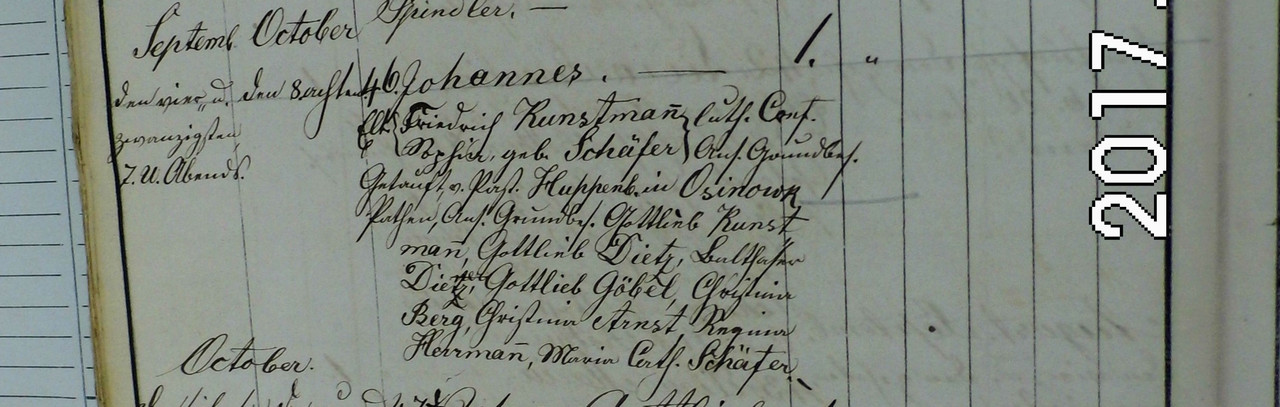 Spindler. —
Septemb. October
1. "
den vier u. den 8 achten 46. Johannes. —
zwanzigsten
7. U. Abends.
Elt. { Friedrich Kunstman̅ } luth. Conf.
Sophia, geb. Schäfer } Ans. Grundbes.
Getauft v. Past. Huppenb. in Osinowk
Pathen, Ans. Grundbes. Gottlieb Kunst
man̅, Gottlieb Dietz, Balthaser
Dietz, Gottlieb Göbel, Christina
Berg, Christina Arnst Regina
Herrman̅, Maria Cath. Schäfer.
October.
2017